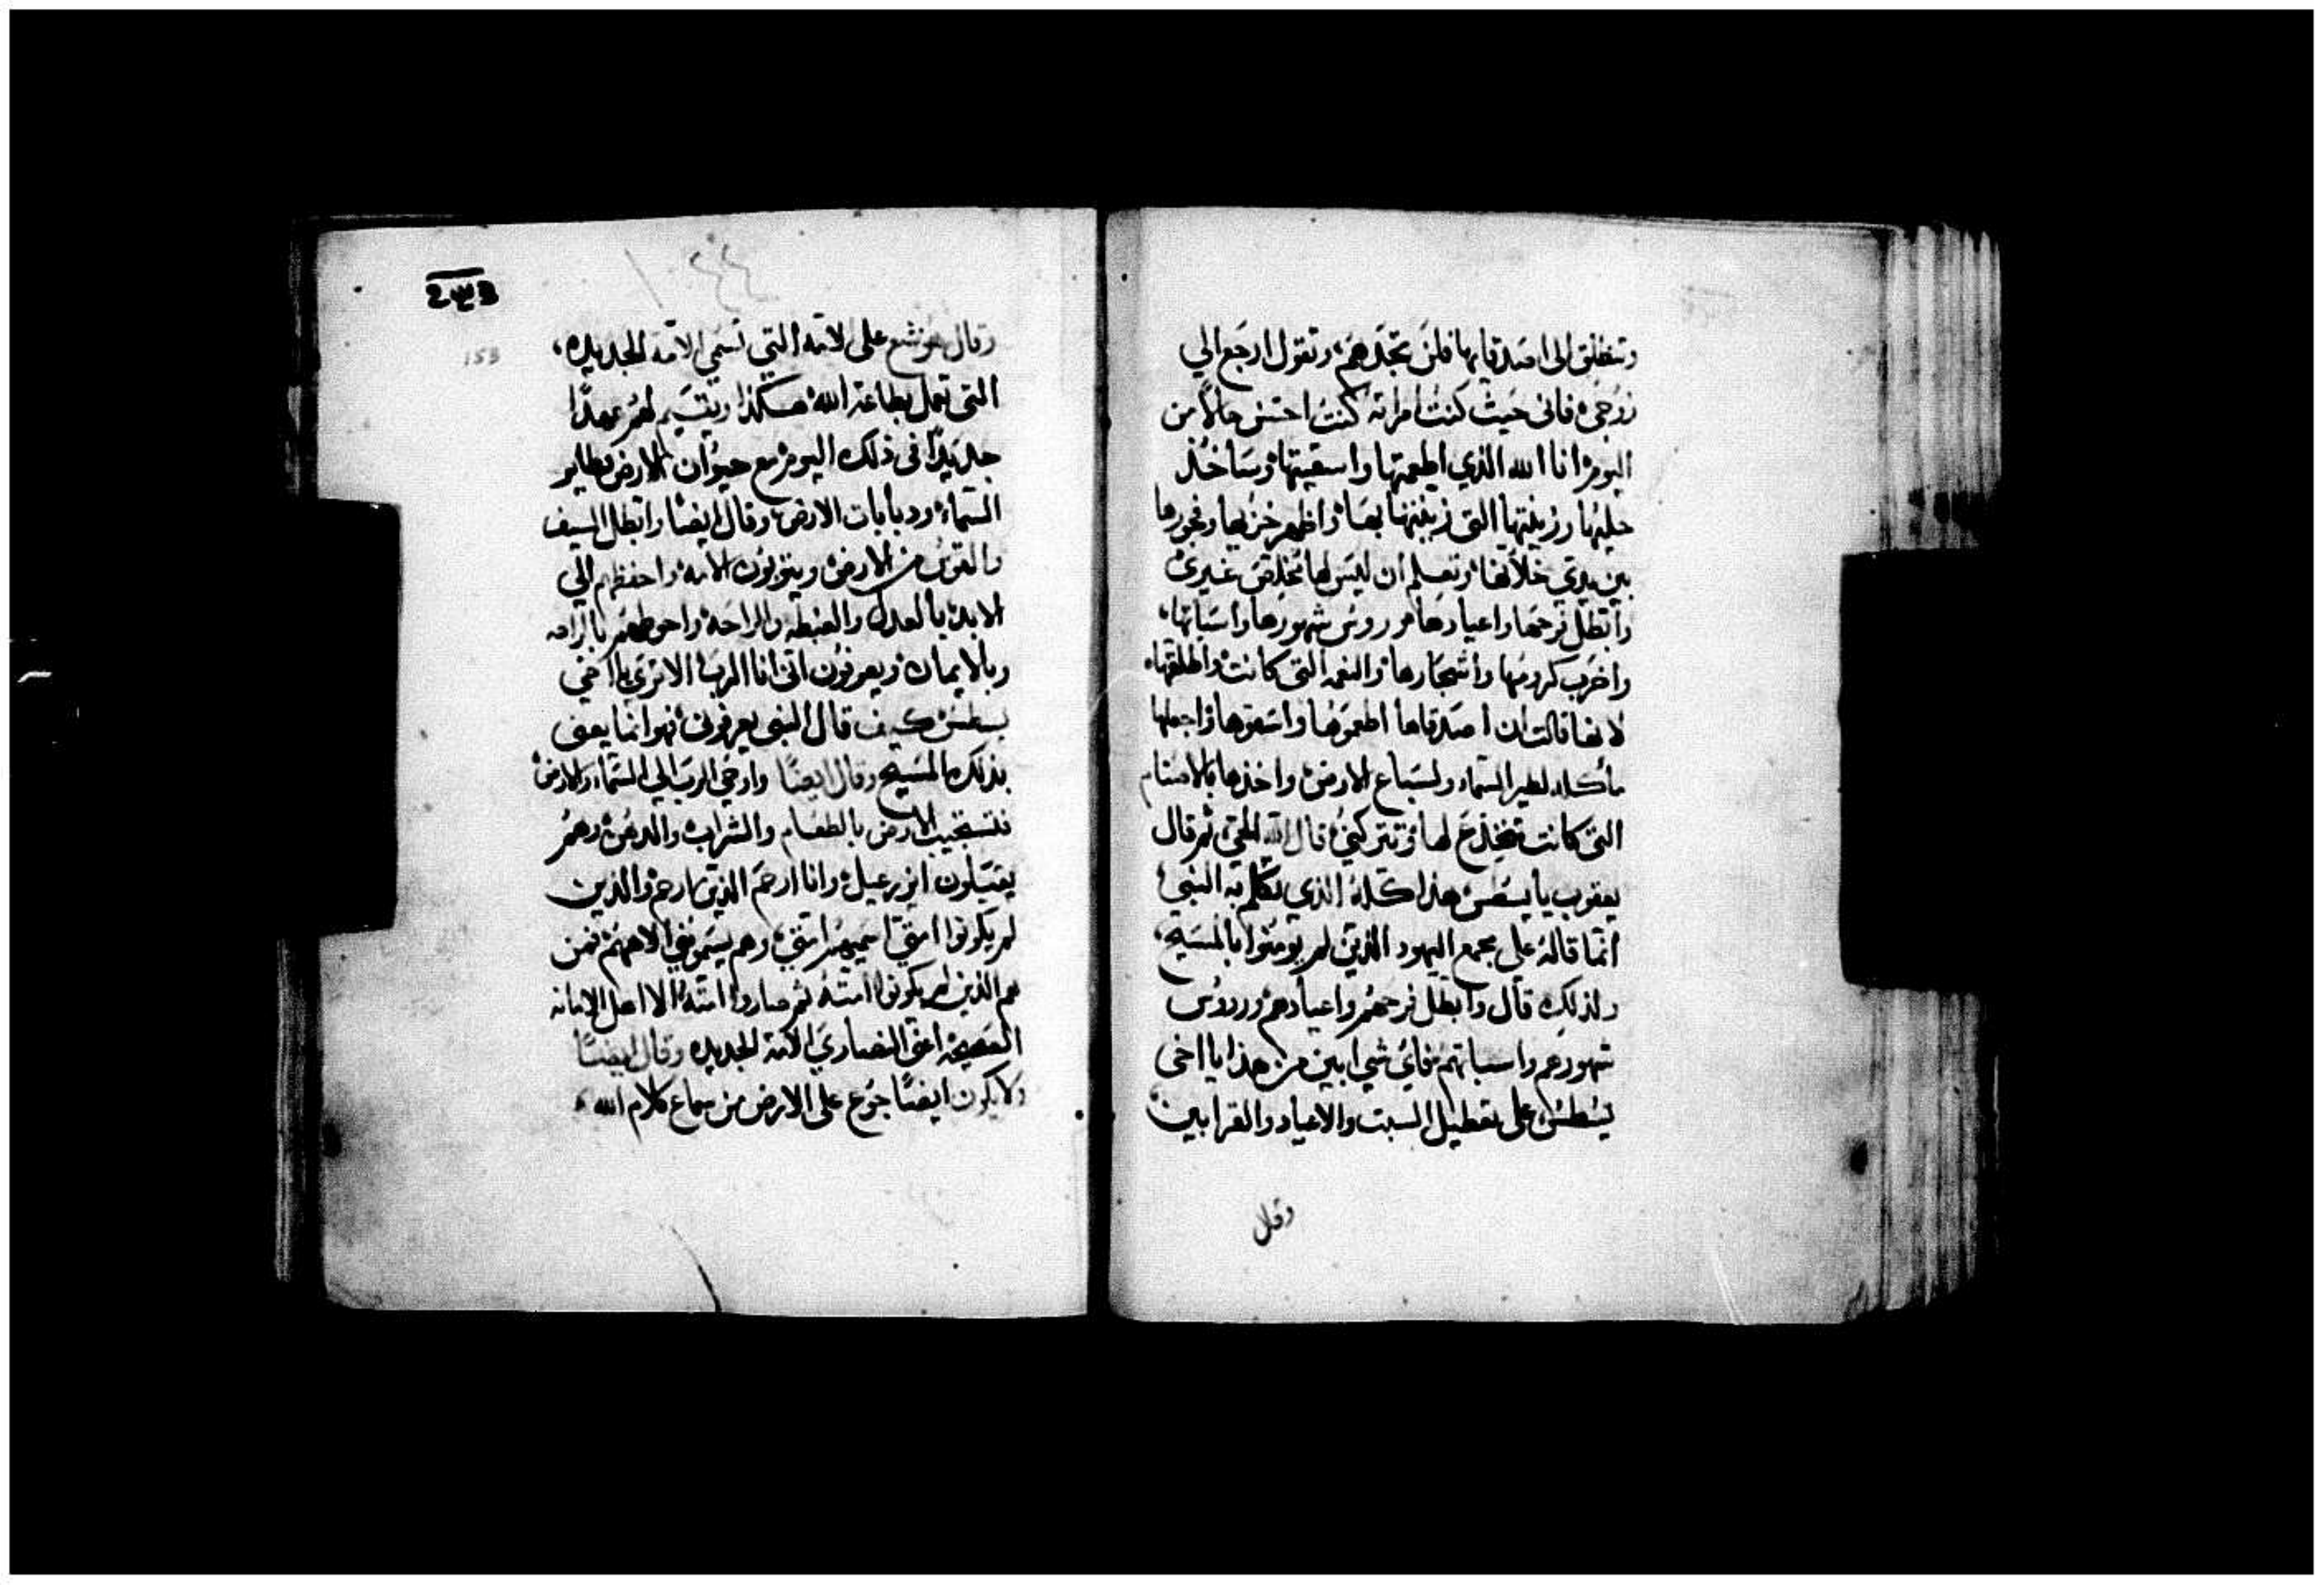 وتنطلق الى اصدقايها فلن تجدهم، وتقول ارجع الي
زوجي، فاني حيث كنت امراته كنت احسن حالاً من
اليوم، انا الله الذي اطعمتها واسقيتها، وساخذ
حليها وزينتها التي زينتها بها، واظهر خزيها وفجورها
بين يدي خلانها، وتعلم ان ليس لها مخلص غيري
وابطل فرحها واعيادها وروس شهورها واسباتها،
واخرب كرومها واشجارها، والنعمه التي كانت واطلقتها،
لانها قالت ان اصدقاها اطعموها واسقوها، واجعلها
مأكله لطير السماء ولسباع الارض، واخذها بالاصنام
التي كانت تخذع لها، وتتركني، قال الله الحي، ثم قال
يعقوب يا يسطس هذا كله الذي تكلم به النبي
انما قاله على مجمع اليهود الذين لم يومنوا بالمسيح،
ولذلك قال وابطل فرحهم واعيادهم وروس
شهورهم واسباتهم، فاي شي ابين من هذا يا اخي
يسطس، على تعطيل السبت والاعياد والقرابين
وقال
153
وقال هوشع على الامه التي تسمى الامه الجديده،
التي تعمل بطاعة الله هكذا، ويقيم لهم عهدًا
جديدًا في ذلك اليوم مع حيوان الارض وطاير
السماء ودبابات الارض، وقال ايضًا وابطل السيف
والقوس من الارض، ويتوبون الامه، واحفظهم الي
الابد، بالعدل والغبطه والراحه، واحوطهم بالرافه
وبالايمان، ويعرفون اني انا الرب، الا ترى يا اخي
يسطس كيف قال النبي يعرفوني، فهو انما يعني
بذلك المسيح وقال ايضًا واوحي الرب الي السماء والارض
فتستجيب الارض بالطعام والشراب، والدهن، وهم
يقتبلون ايزرعيل، وانا ارحم الذين ارحم، والذين
لم يكونوا امتي اسميهم امتي، وهم يسموني الاههم، فمن
هم الذين لم يكونوا امته، ثم صاروا امته، الا اهل الامانه
الصحيحه، اعني النصارى الامه الجديده وقال ايضًا
ولا يكون ايضًا جوع على الارض من سماع كلام الله،